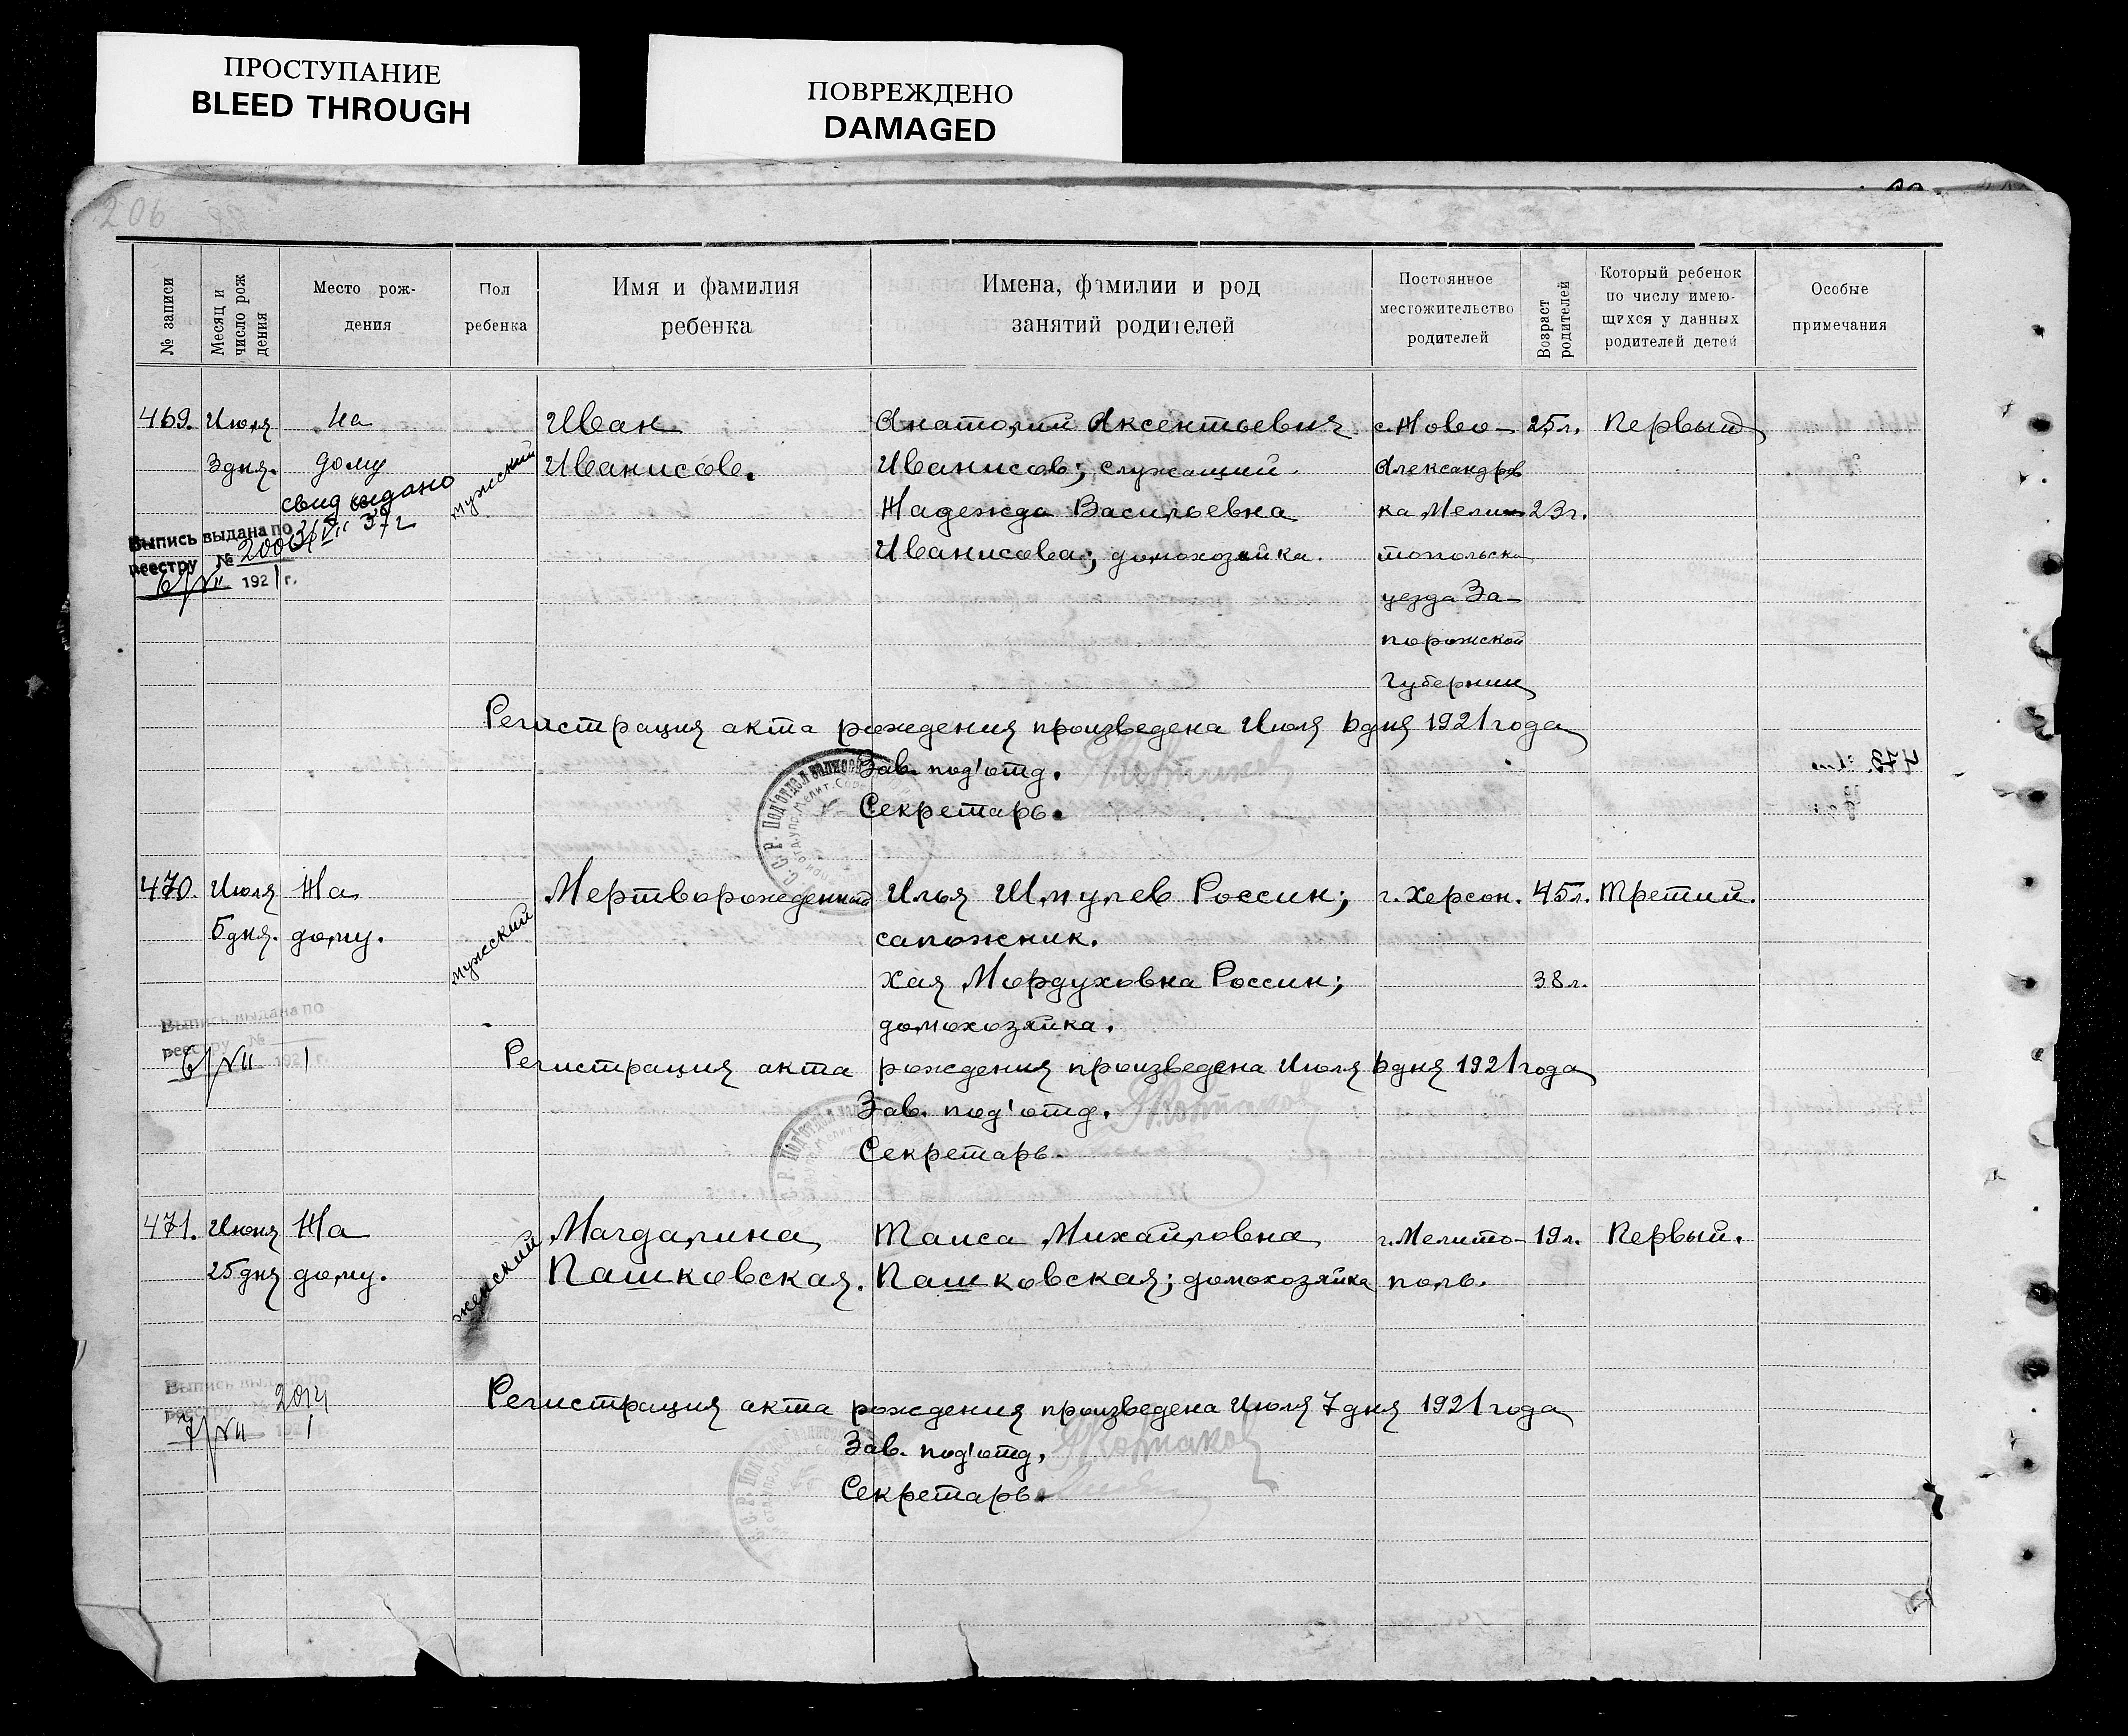 ПРОСТУПАНИЕ
BLEED THROUGH
ПОВРЕЖДЕНО
DAMAGED
206
№ записи
Месяц и
число рож
дения
Место рож-
дения
Пол
ребенка
Имя и фамилия
ребенка
Имена, фамилии и род
занятий родителей
Постоянное
местожительство
родителей
Возраст
родителей
Который ребенок
по числу имею-
щихся у данных
родителей детей
Особые
примечания
469. Июля На Иван Анатолий Аксентьевич с. Ново- 25 л. Первый
3 дня. дому мужский Иванисов. Иванисов; служащий. Александров
свид выдано Надежда Васильевна ка Мели- 23 г.
Выпись выдана по
реестру №
6/VII 1921 г.
Иванисова; домохозяйка. топольск
уезда За-
порожской
губернии
Регистрация акта рождения произведена Июля 6 дня 1921 года
Зав. под'отд.
Секретарь.
470. Июля На Мертворожденный Илья Шмулев Россин; г. Херсон. 45 л. Третий.
5 дня. дому. мужский сапожник.
Хая Мордуховна Россин; 38 л.
Выпись выдана по
реестру №
6/VII 1921 г.
домохозяйка.
Регистрация акта рождения произведена Июля 6 дня 1921 года
Зав. под'отд.
Секретарь.
471. Июня На Магдалина Таиса Михайловна г. Мелито- 19 л. Первый.
25 дня дому. женский Пашковская. Пашковская; домохозяйка поль.
Выпись выдана по
реестру № 2014
7/VII 1921 г.
Регистрация акта рождения произведена Июля 7 дня 1921 года
Зав. под'отд.
Секретарь.